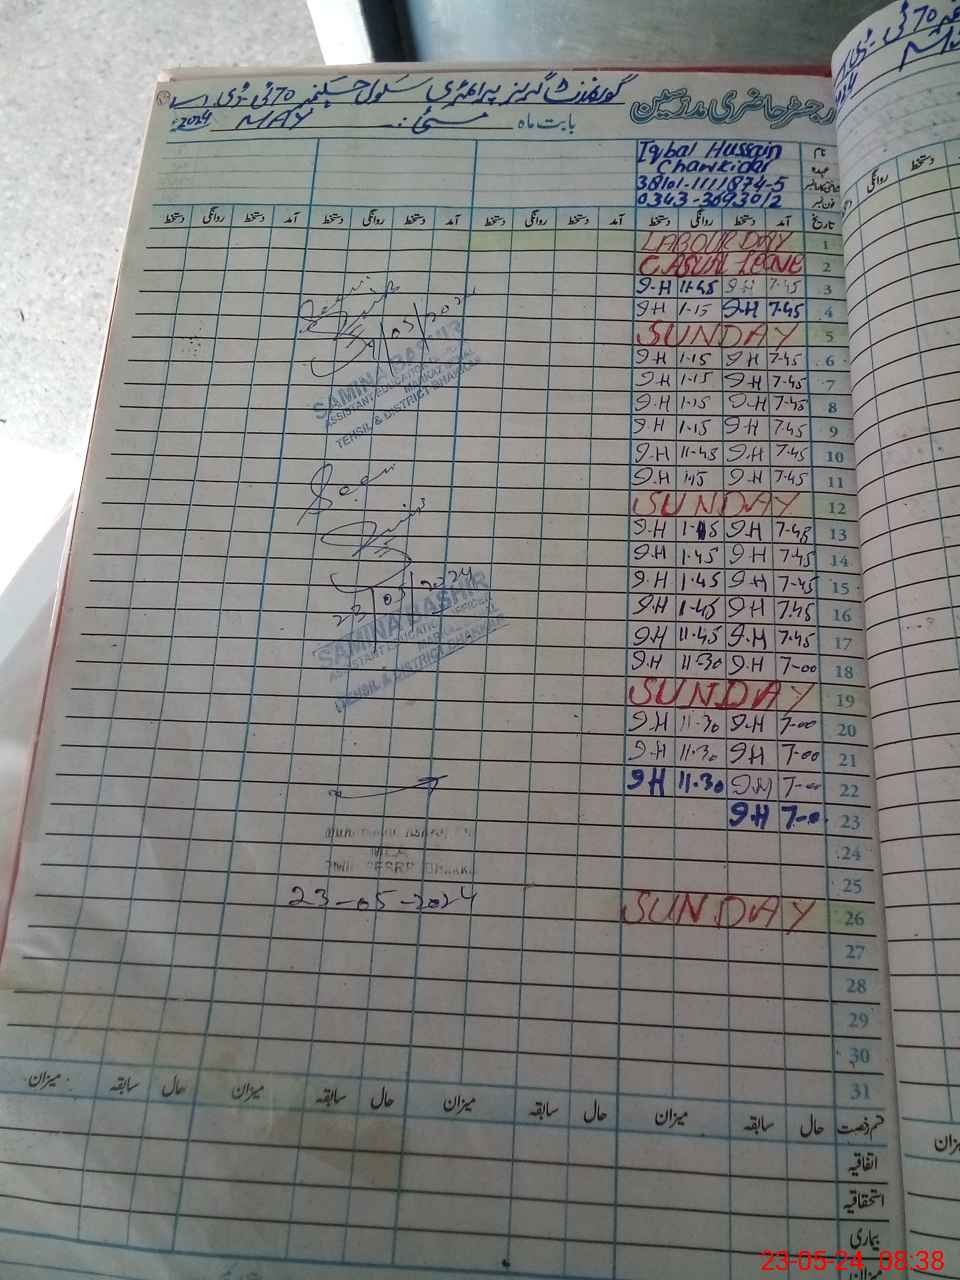 رجسٹر حاضری مدرسین گورنمنٹ گرلز پرائمری سکول چک نمبر 70 ٹی۔ڈی۔اے
بابت ماہ مئی: MAY 2024
نام Iqbal Hussain
عہدہ Chawkidar
38101-1111874-5
فون نمبر 0343-3693012
تاریخ آمد دستخط روانگی دستخط آمد دستخط روانگی دستخط آمد دستخط روانگی دستخط آمد دستخط روانگی دستخط
1 LABOUR DAY
2 CASUAL LEAVE
3 7-45 I.H 11-45 I.H
4 7-45 I.H 1-15 I.H
5 SUNDAY
6 7-45 I.H 1-15 I.H
7 7-45 I.H 1-15 I.H
8 7-45 I.H 1-15 I.H
9 7-45 I.H 1-15 I.H
10 7-45 I.H 11-45 I.H
11 7-45 I.H 1-15 I.H
12 SUNDAY
13 7-45 I.H 1-45 I.H
14 7-45 I.H 1-45 I.H
15 7-45 I.H 1-45 I.H
16 7-45 I.H 1-45 I.H
17 7-45 I.H 11-45 I.H
18 7-00 I.H 11-30 I.H
19 SUNDAY
20 7-00 I.H 11-30 I.H
21 7-00 I.H 11-30 I.H
22 7-00 I.H 11-30 I.H
23 7-00 I.H
24
25
26 SUNDAY
27
28
29
30
31
/05/2024
SAMINA BASHIR
ASSISTANT EDUCATION OFFICER
TEHSIL & DISTRICT BHAKKAR
Seen
23/05/2024
SAMINA BASHIR
ASSISTANT EDUCATION OFFICER
TEHSIL & DISTRICT BHAKKAR
23-05-2024
قسم رخصت حال سابقہ میزان حال سابقہ میزان حال سابقہ میزان حال سابقہ میزان
اتفاقیہ
استحقاقیہ
بیماری
میزان
روانگی دستخط
میزان
23-05-24 08:38